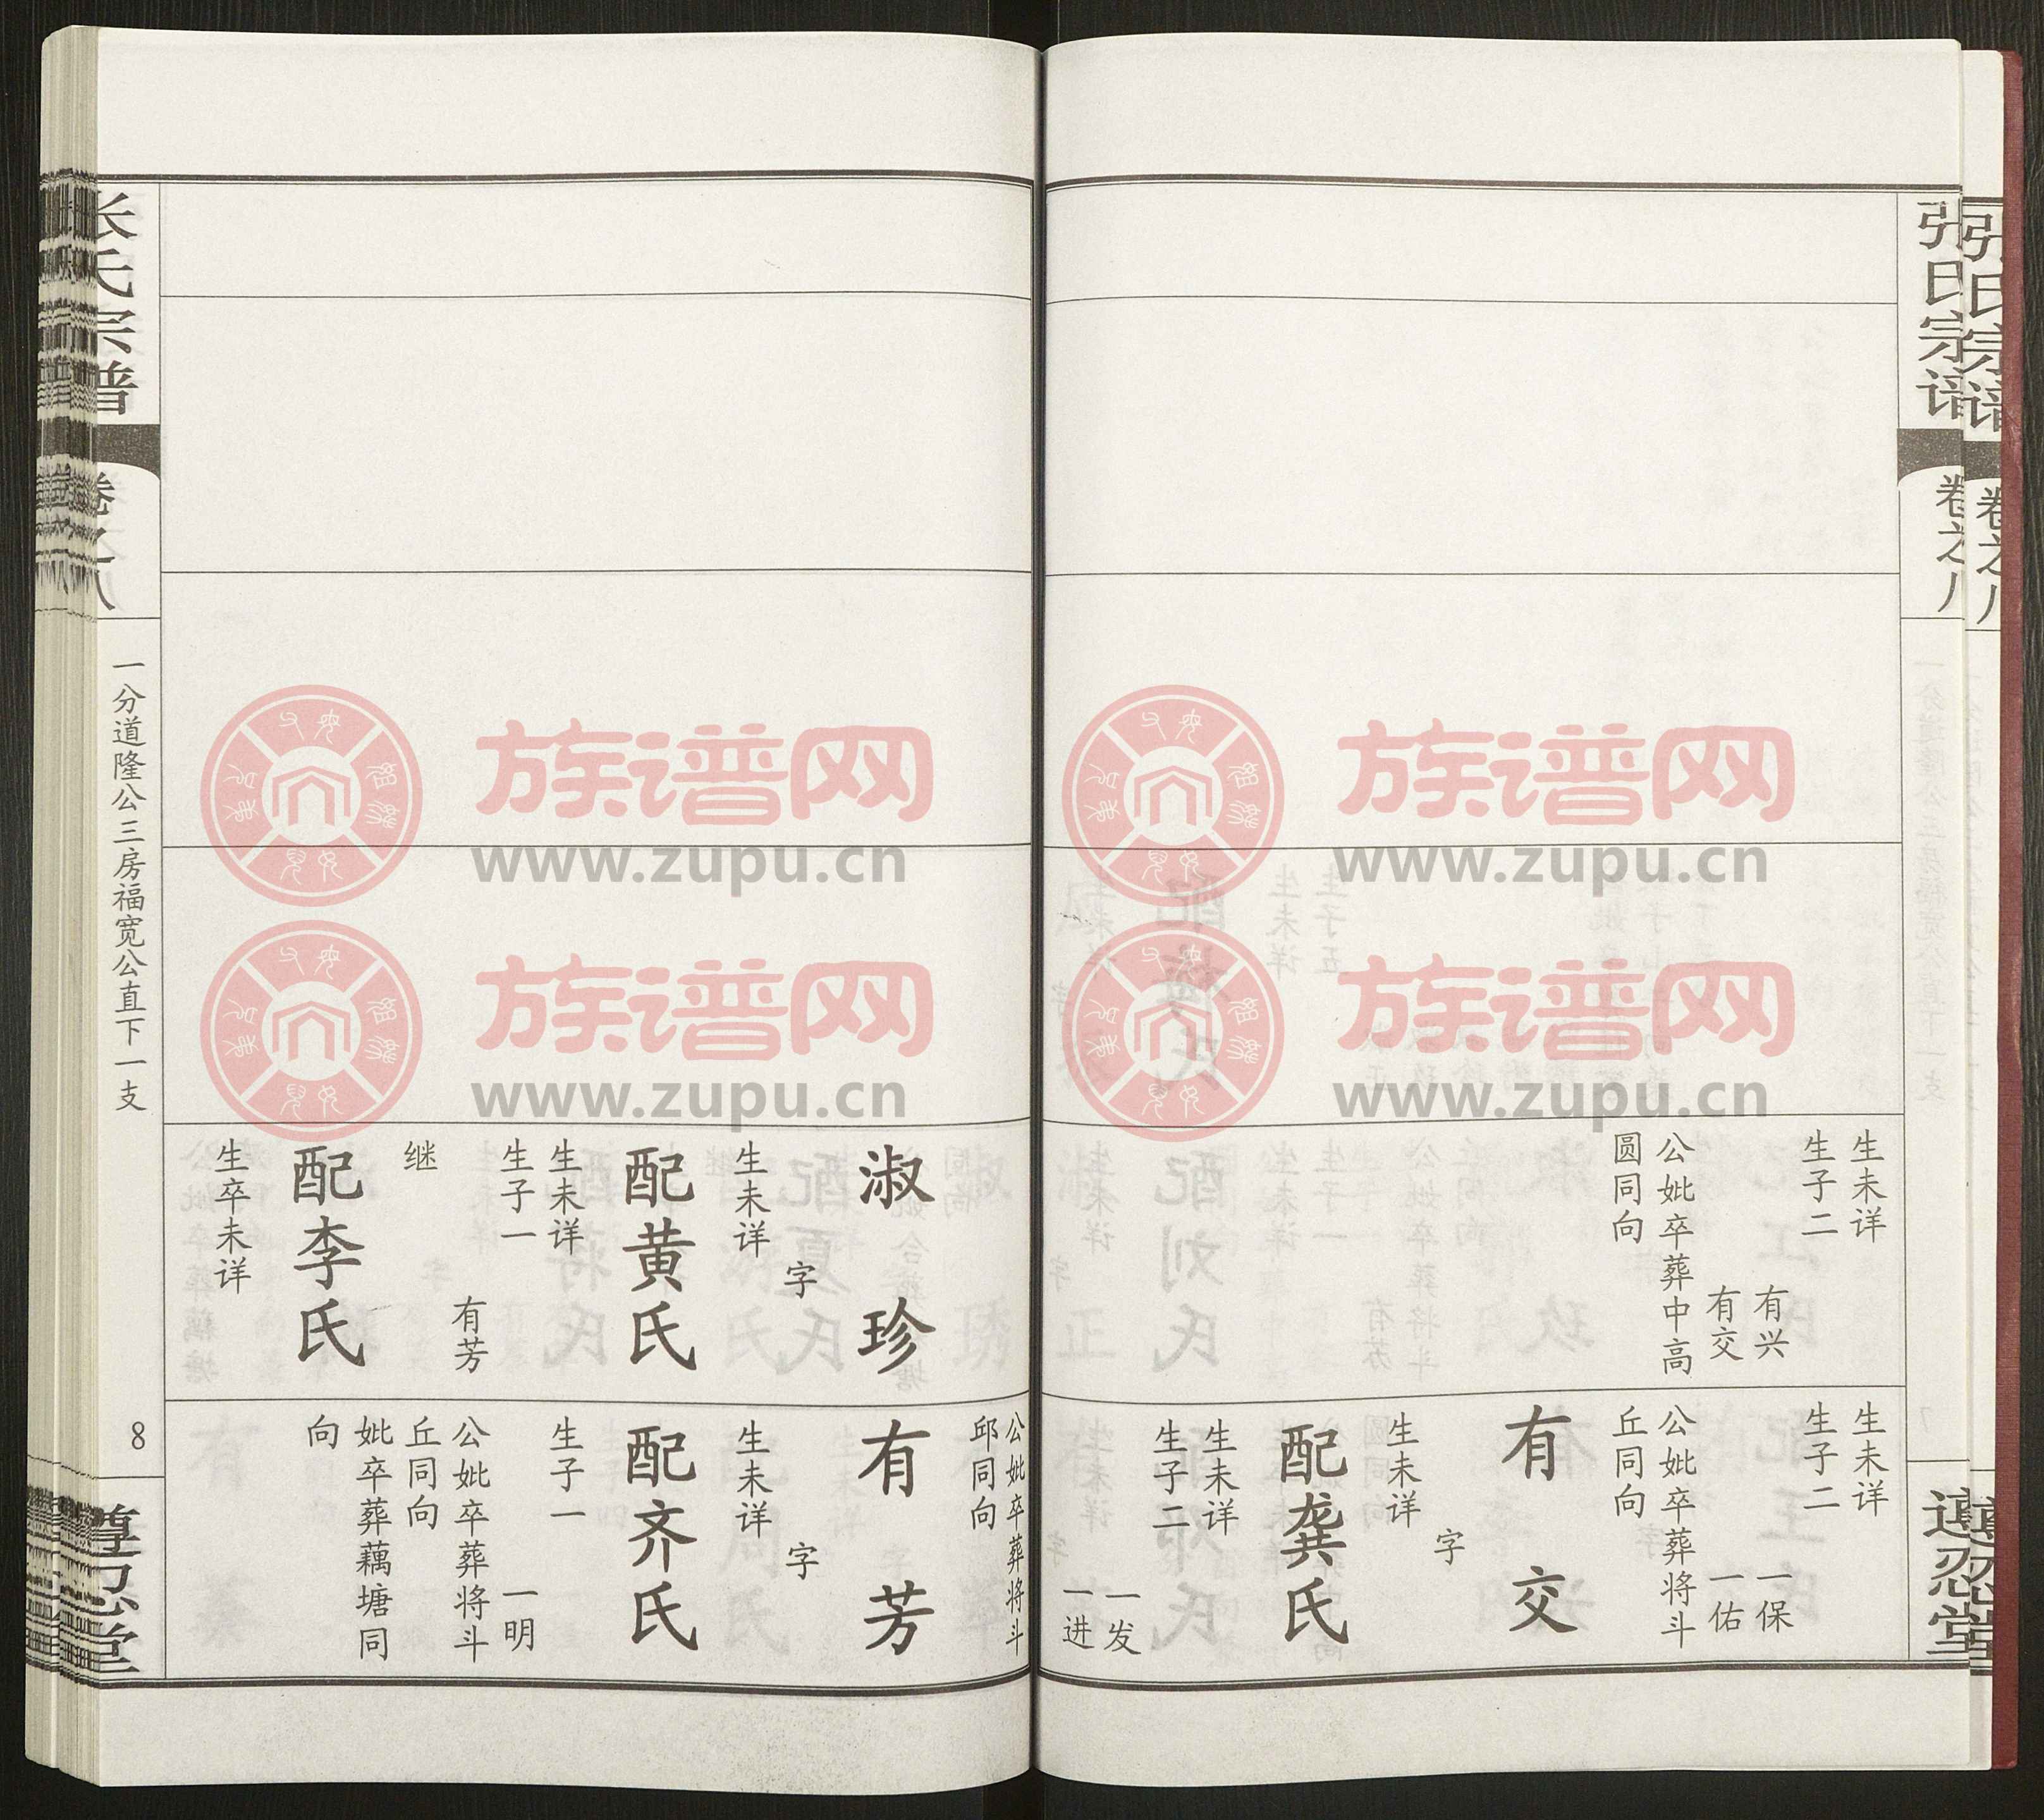 张氏宗谱
卷之八
遵忍堂
张氏宗谱
卷之八
生未详
生子二
有兴
有交
公妣卒葬中高
圆同向
生未详
生子二
一保
一佑
公妣卒葬将斗
丘同向
有交
字
生未详
配龚氏
生未详
生子二
一发
一进
公妣卒葬将斗
邱同向
淑珍
字
生未详
配黄氏
生未详
生子一
有芳
继
配李氏
生卒未详
有芳
字
生未详
配齐氏
生子一
一明
公妣卒葬将斗
丘同向
妣卒葬藕塘同
向
张氏宗谱
卷之八
一分道隆公三房福宽公直下一支
8
遵忍堂
族谱网
www.zupu.cn
族谱网
www.zupu.cn
族谱网
www.zupu.cn
族谱网
www.zupu.cn